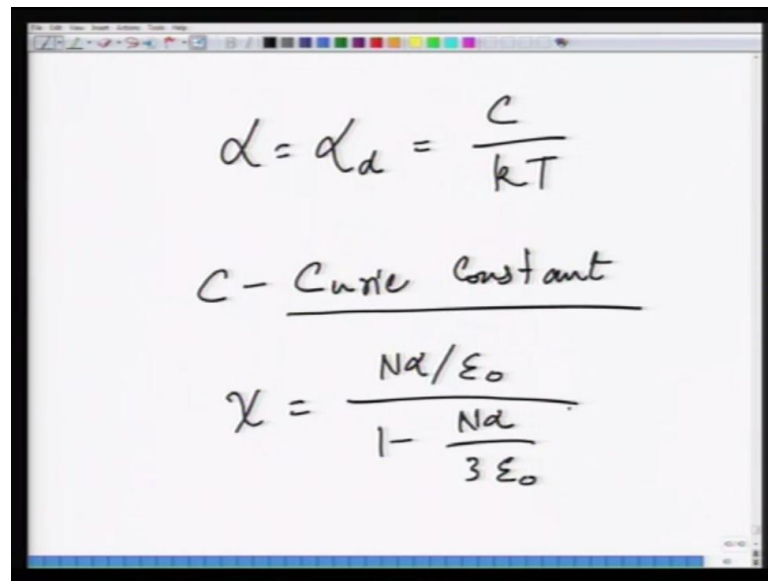 File Edit View Insert Actions Tools Help
α = α_d = C / kT
C - Curie Constant
χ = (Nα/ε₀) / (1 - Nα/3ε₀)